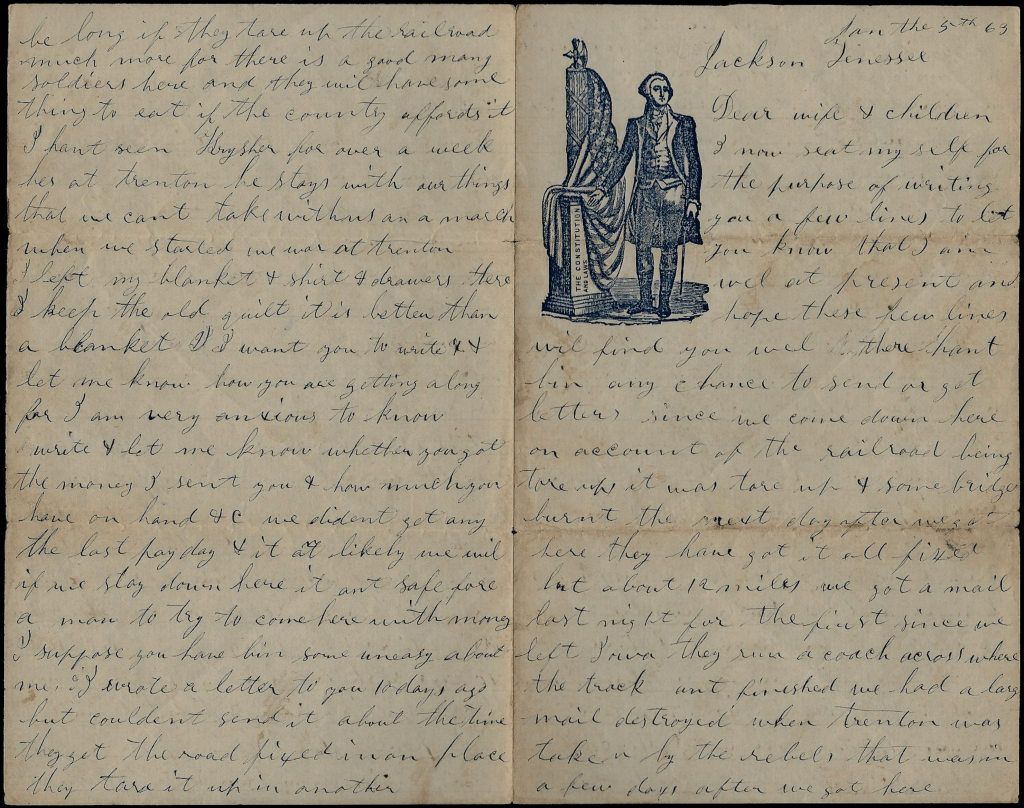 be long if they tare up the railroad
much more for there is a good many
soldiers here and they wil have some
thing to eat if the country affords it
I hant seen Krysher for over a week
hes at trenton he stays with our things
that we cant take with us on a march
when we started we war at trenton
I left my blanket & shirt & drawers there
I keep the old quilt it is better than
a blanket I want you to write &
let me know how you are getting along
for I am very anxious to know
write & let me know whether you got
the money I sent you & how much you
have on hand &c we dident get any
the last pay day & it at likely we wil
if we stay down here it ant safe fore
a man to try to come here with money
I suppose you have bin some uneasy about
me I wrote a letter to you 10 days ago
but couldent send it about the time
they get the road fixed in on place
they tare it up in another
Jan the 5th 63
Jackson Tinessee
Dear wife & children
I now seat my self for
the purpose of writing
you a few lines to let
you know that I am
wel at present and
hope these few lines
wil find you wel there hant
bin any chance to send or get
letters since we come down here
on account of the railroad being
tore up it was tore up & some bridge
burnt the next day after we got
here they have got it all fixed
but about 12 miles we got a mail
last night for the first since we
left Iowa they run a coach across where
the track ant finished we had a larg
mail destroyed when trenton was
taken by the rebels that was in
a few days after we got here
THE CONSTITUTION
AND LAWS